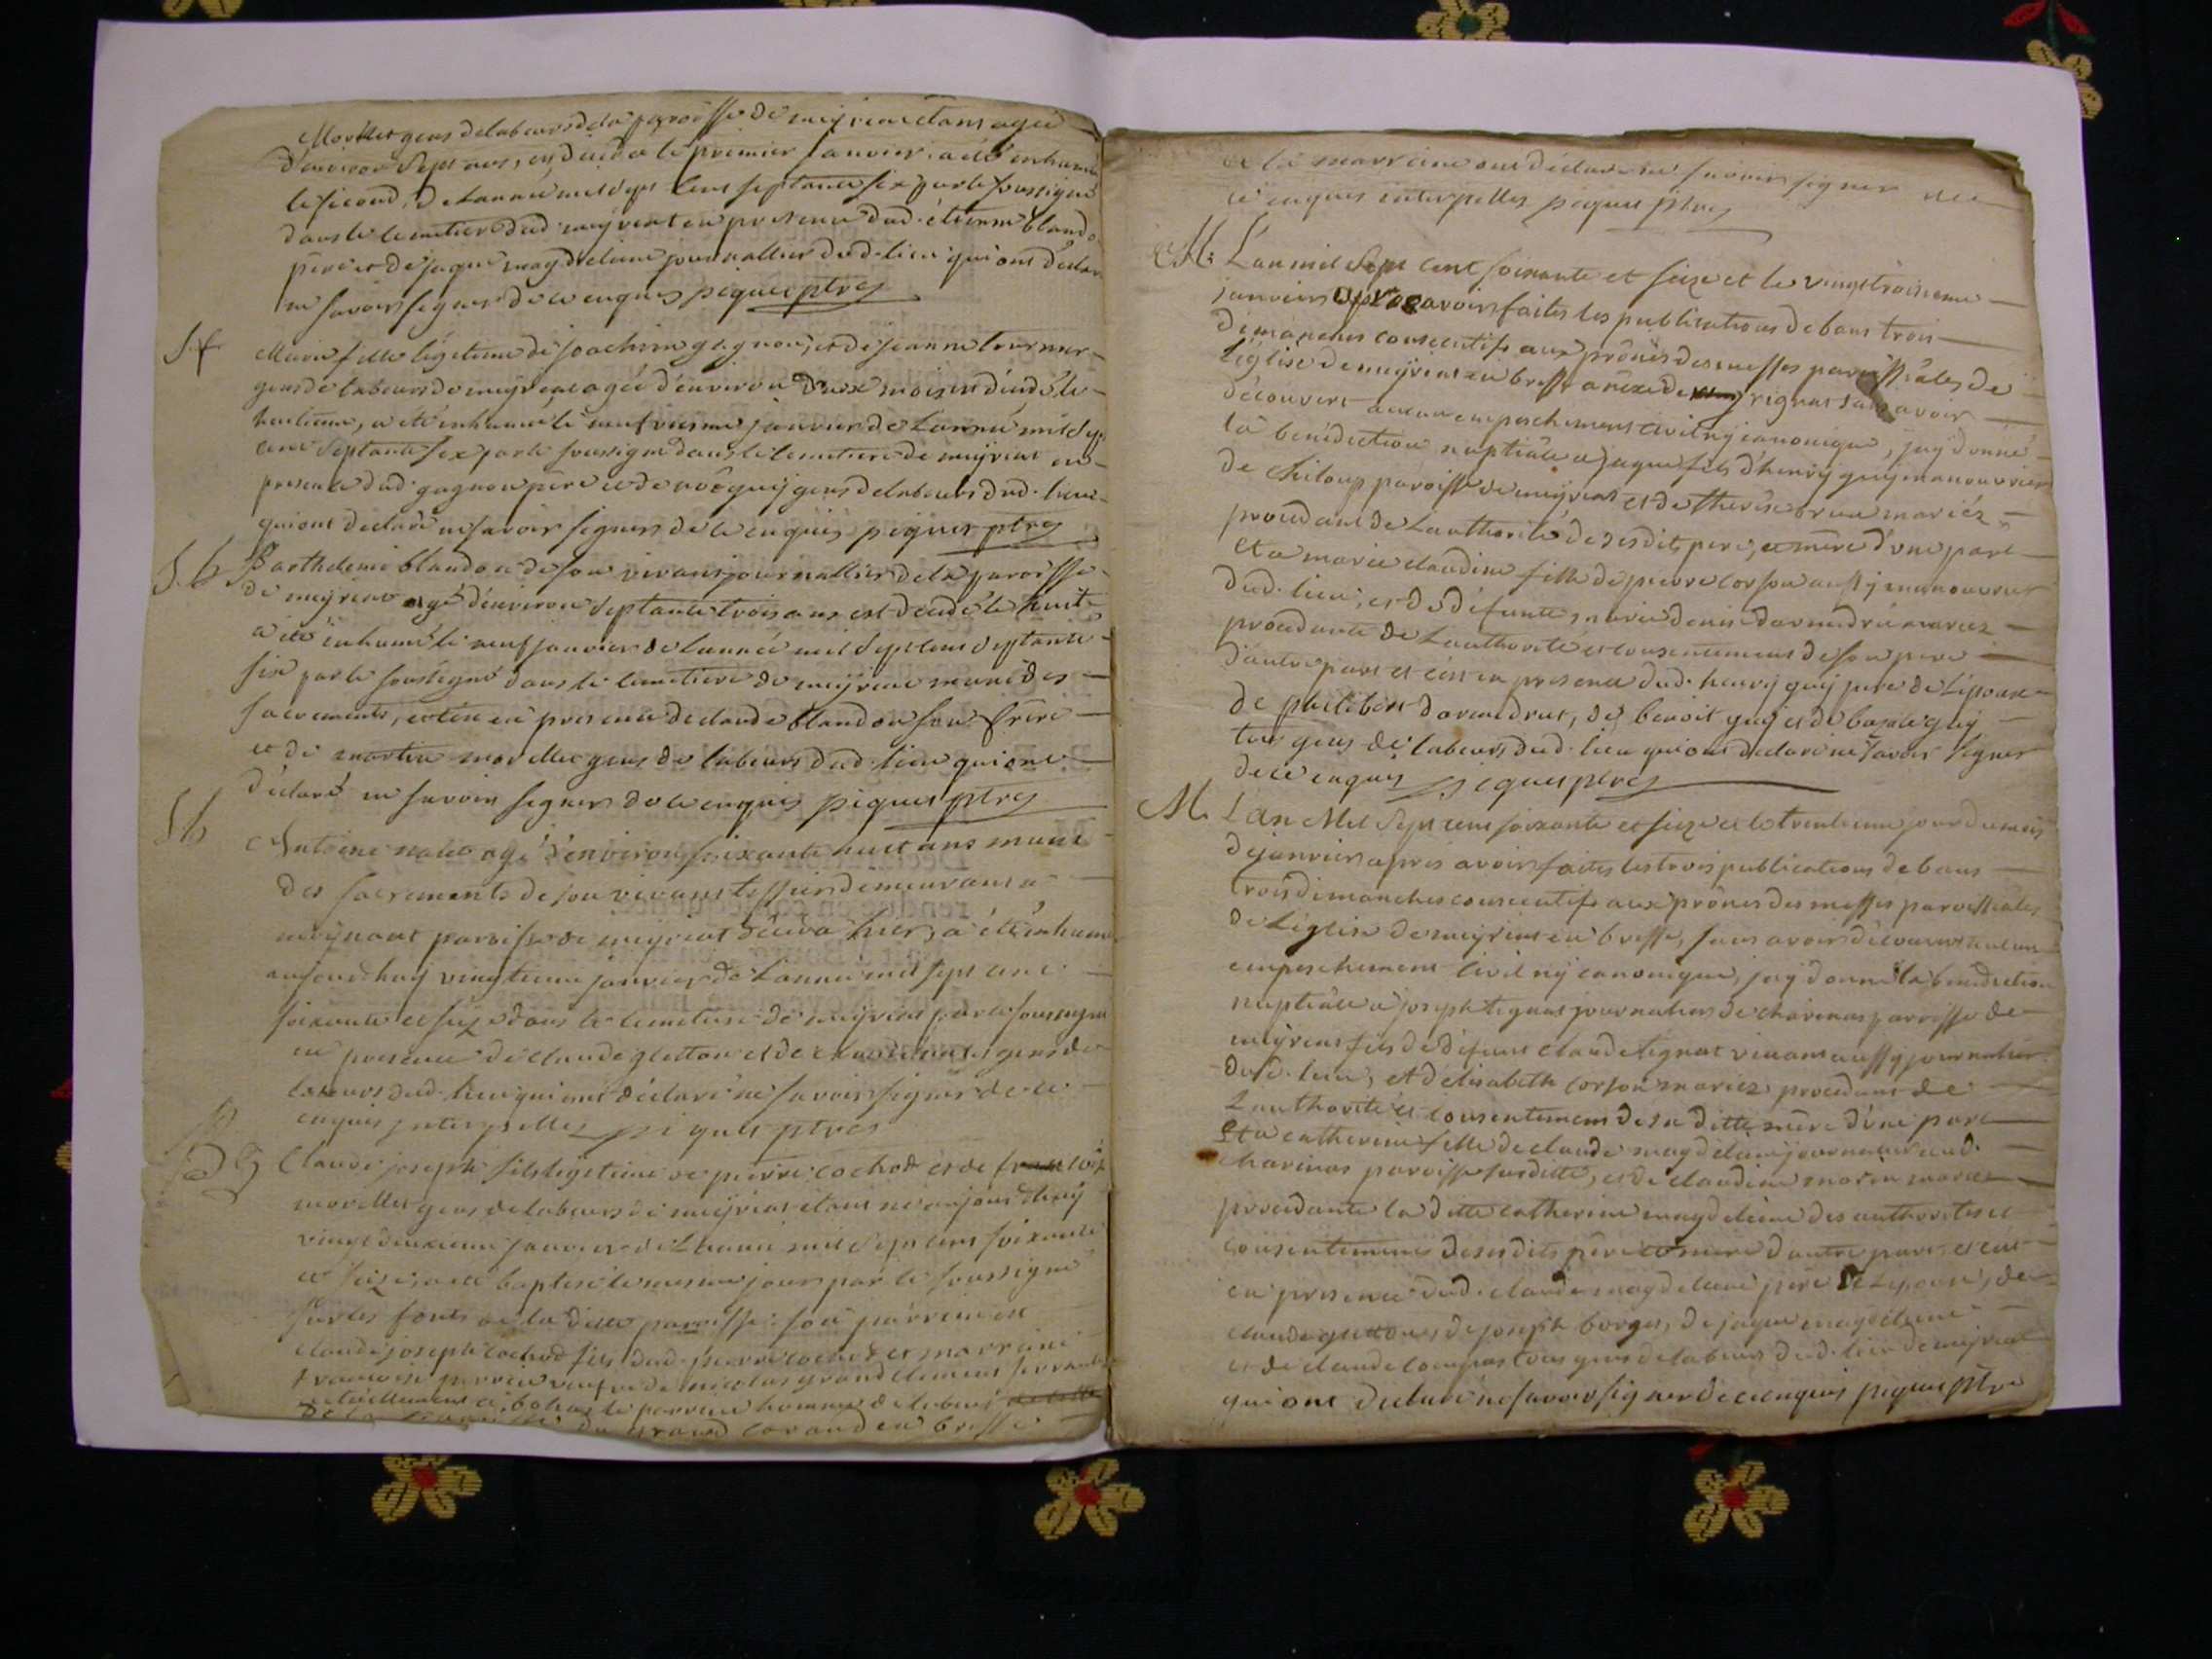 Morellet gens de labeurs de la paroisse de meyriat etant agée
d'environ Sept ans, est décédée le premier janvier, a été inhumée
le second, de l'année mil sept cens septante six par le soussigné
dans le cemetiere dud. meyriat en presence dud. étienne blandon
père et de jaque magdeleine journallier dud. lieu qui ont déclaré
ne savoir signer de ce enquis piquet ptre
S. f.
Marie fille légitime de joachim gagnon, et de jeanne tournier
gens de labeurs de meyriat agée d'environ deux mois est décédée le
huitieme, a été inhumée le neufviesme janvier de l'année mil sept
cent septante six par le soussigné dans le cemetiere de meyriat en
presence dud. gagnon père et de guy gens de labeurs dud. lieu
qui ont declaré ne savoir signer de ce enquis piquet ptre
S. h
Barthelemie blandon de son vivant journallier de la paroisse
de meyriat agé d'environ septante trois ans est décédé le huit
a été inhumé le neuf janvier de l'année mil sept cens septante
six par le soussigné dans le cemetiere de meyriat muni des
sacrements, et ce en presence de claude blandon son frère
et de martin morellet gens de labeurs dud. lieu qui ont
déclaré ne savoir signer de ce enquis piquet ptre
S h
Antoine agé d'environ soixante huit ans muni
des sacrements de son vivant tissier demeurant a
paroisse de meyriat décéda hier, a été inhumé
aujourd'huy vingtieme janvier de l'année mil sept cent
soixante et seize dans le cemetiere de meyriat par le soussigné
en presence de claude gletton et de gens de
labeurs dud. lieu qui ont déclaré ne savoir signer de ce
enquis interpelles piquet ptre
B g
Claude joseph fils légitime de pierre cochod et de
morellet gens de labeurs de meyriat etant né aujourd'huy
vingt deuxieme janvier de l'année mil sept cens soixante
et seize, a été baptisé le mesme jour par le soussigné
sur les fonts de la ditte paroisse son parrain est
claude joseph cochod fils dud. pierre cochod et marraine
françoise perrin veufve de nicolas grandclement servante
actuellement a bohas le parrain homme de labeurs
de la du grand corand en bresse
et la marraine ont déclaré ne savoir signer de
ce enquis interpelles piquet ptre
M. L'an mil Sept cent soixante et seize et le vingt troisieme
janvier après avoir faites les publications de bans trois
dimanches consecutifs aux prônes des messes paroissiales de
l'église de meyriat en bresse annexe de rignat sans avoir
découvert aucun empeschement civil ny canonique, j'ay donné
la bénédiction nuptiale a jaque fils d'henry guy manouvrier
de chiloup paroisse de meyriat et de therese brun mariéz
procedant de l'authorité de ses dits pere, et mère d'une part
et a marie claudine fille de pierre corson aussy manouvrier
dud. lieu, et de défunte marie denise darmedru mariez
procedante de l'authorité et consentement de son pere
d'autre part et ce en presence dud. henry guy pere de l'epoux
de philibert darmedrut, de benoit guy et de guy
tous gens de labeurs dud. lieu qui ont declaré ne savoir signer
de ce enquis piquet ptre
M. L'an Mil Sept cens soixante et seize et le trentieme jour du mois
de janvier après avoir faites les trois publications de bans
trois dimanches consecutifs aux prônes des messes paroissiales
de l'église de meyriat en bresse, sans avoir découvert aucun
empeschement civil ny canonique, j'ay donné la benediction
nuptiale a joseph tignat journalier de charinas paroisse de
meyriat fils de défunt claude tignat vivant aussy journalier
dud. lieu, et d'elisabeth corson mariez procedant de
l'authorité et consentement de sa ditte mère d'une part
et a catherine fille de claude magdeleine journalier aud.
charinas paroisse susditte, et de claudine morin mariez
procedante la ditte catherine magdeleine des authorites et
consentements de ses dits père et mère d'autre part et ce
en presence dud. claude magdeleine père de l'epouse, de
claude gletton, de joseph borges, de jaque magdeleine
et de claude compas tous gens de labeurs dud. lieu de meyriat
qui ont declaré ne savoir signer de ce enquis piquet ptre